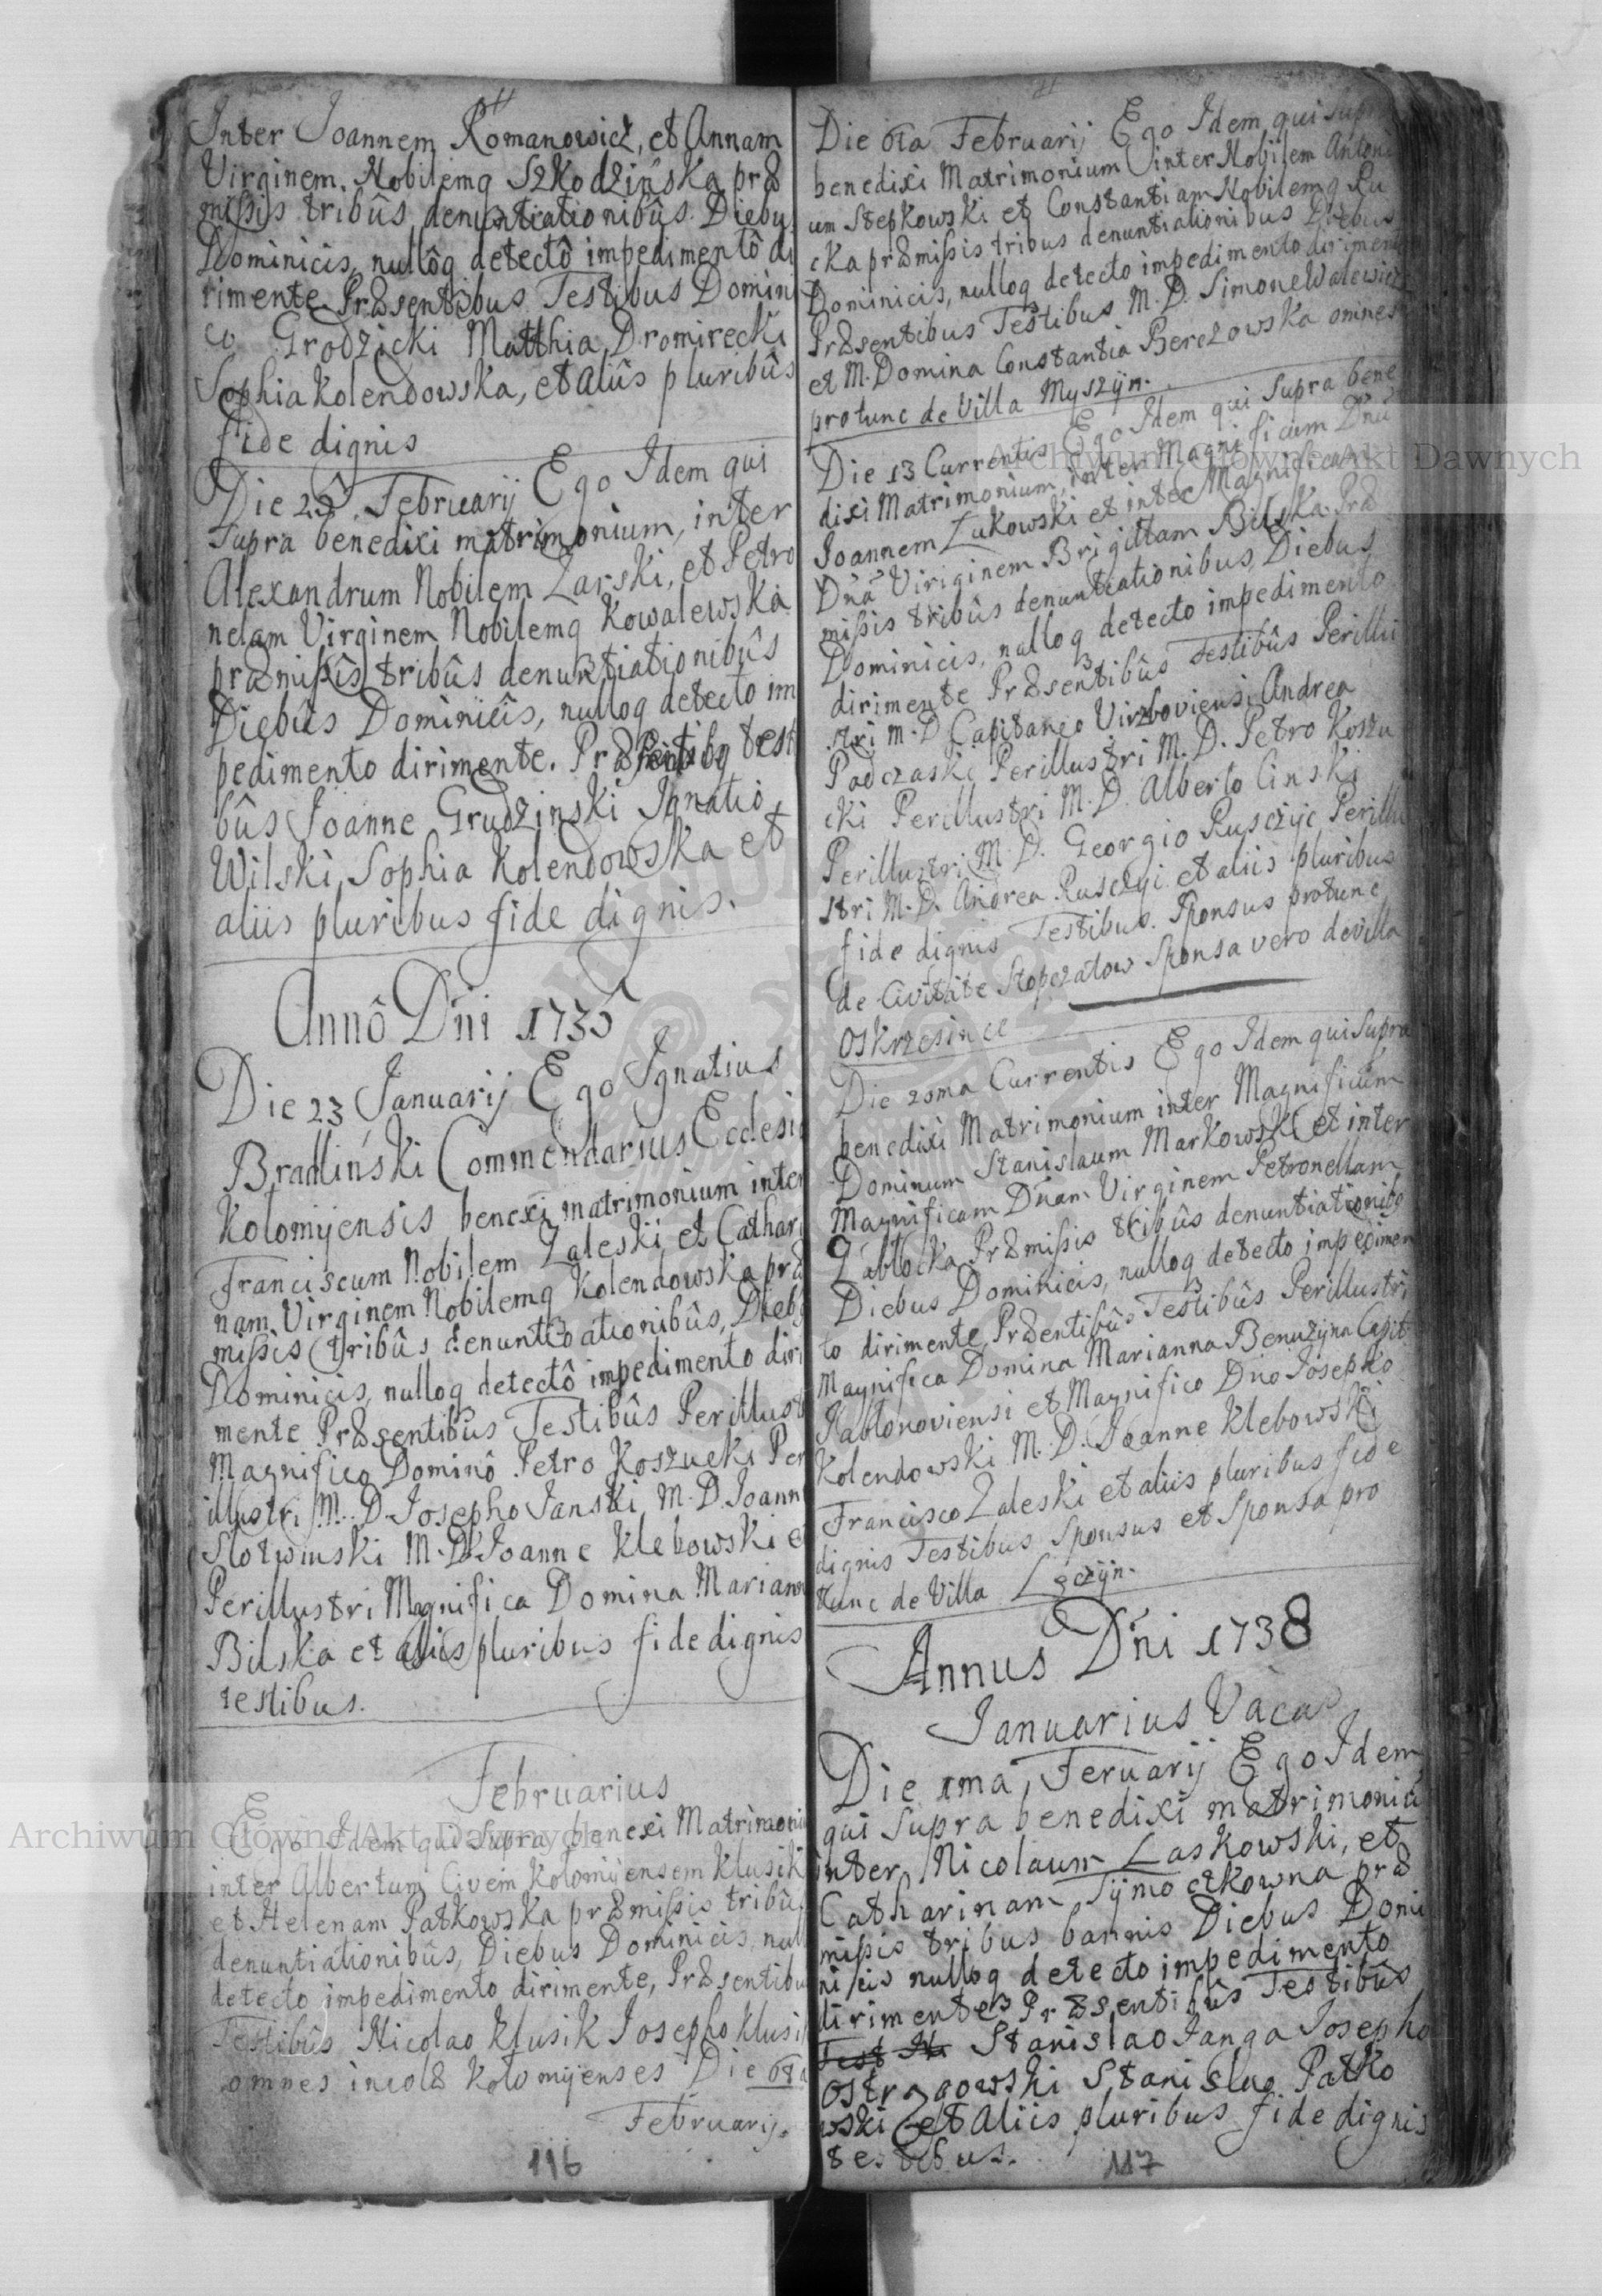 Inter Joannem Romanowicz, et Annam
Virginem. Nobilemq Szkodzińska præ
missis tribûs denuntiationibûs Diebu
Dominicis, nullôq detectô impedimentô di
rimente Præsentibus Testibus Domini
co Grodzicki Matthia Dromirecki
Sophia Kolendowska, et aliis pluribûs
fide dignis
Die Februarij Ego Idem qui
supra benedixi matrimonium, inter
Alexandrum Nobilem Zarski, et Petro
nelam Virginem Nobilemq Kowalewska
præmissîs tribûs denuntiationibûs
Diebûs Dominicîs, nulloq detecto im
pedimento dirimente. testi
bûs Joanne Grudzinski Ignatio
Wilski, Sophia Kolendowska et
aliis pluribus fide dignis.
Annô Dńi 1735
Die 23 Januarij Ego Ignatius
Bradliński Commendarius Ecclesiæ
Kolomyensis benexi matrimonium inter
Franciscum Nobilem Zaleski et Cathari
nam Virginem Nobilemq Kolendowska præ
missis tribûs denuntiationibûs, Dieb
Dominicis, nulloq detectô impedimento diri
mente Præsentibus Testibûs Perillust
Magnifico Dominô Petro Koszucki Per
illustri M. D. Josepho Janski, M. D. Joann
Slotwinski M. D. Joanne Klebowski et
Perillustri Magnifica Domina Mariann
Bilska et aliis pluribus fide dignis
testibus.
Februarius
Ego Idem qui supra benexi Matrimoni
inter Albertum Civem Kolomyensem Klusik
et Helenam Patkowska præmissis tribûs
denuntiationibûs, Diebus Dominicis, null
detecto impedimento dirimente, Præsentibu
Testibûs Nicolao Klusik Josepho Klusi
omnes incolæ Kolomyenses Die 6ta
Februarij.
116
Die 6ta Februarij Ego Idem qui supr
benedixi Matrimonium inter Nobilem Antoni
um Stepkowski et Constantiam Nobilemq Ru
cka præmissis tribus denuntiationibus Diebus
Dominicis, nulloq detecto impedimento dirimente
Præsentibus Testibus M. D. Simone Walewicz
et M. Domina Constantia Berezowska omnes
protunc de Villa Myszyn.
Die 13 Currentis Ego Idem qui Supra bene
dixi Matrimonium, inter Magnificum Dnū
Joannem Lukowski et inter Magnificam
Dnā Viriginem Brigittam Bilska. Præ
missis tribûs denuntiationibus, Diebus
Dominicis, nulloq detecto impedimento
dirimente Præsentibûs Testibûs Perillu
stri M. D Capitaneo Virzboviensi Andrea
Padczaski Perillustri M. D. Petro Koszu
cki Perillustri M. D. Alberto Cinski
Perillustri M. D. Georgio Rusczyc Perillu
stri M. D. Andrea Rusczyc et aliis pluribus
fide dignis Testibus. Sponsus protunc
de Civitate Stopczatow Sponsa vero de villa
Oskrzesince
Die 20ma Currentis Ego Idem qui Supra
benedixi Matrimonium inter Magnificum
Dominum Stanislaum Markowski et inter
Magnificam Dńam Virginem Petronellam
Zablocka Præmissis tribûs denuntiationibq
Diebus Dominicis, nulloq detecto impedimen
to dirimente, Præentibûs Testibûs Perillustri
Magnifica Domina Marianna Benuzyna Capit
Jablonoviensi et Magnifico Dno Josepho
Kolendowski M. D. Joanne Klebowski
Francisco Zaleski et aliis pluribus fide
dignis Testibus Sponsus et Sponsa pro
tunc de Villa Lęczyn.
Annus Dńi 1738
Januarius Vacat
Die 1ma Feruarij Ego Idem
qui Supra benedixi matrimoniū
inter Nicolaum Laskowski, et
Catharinam præ
missis tribus bannis Diebus Domi
nicis nulloq detecto impedimento
dirimente Præsentibûs Testibûs
Stanislao Janga Josepho
Ostrzgowski Stanislao Patko
wski et aliis pluribus fide dignis
testibus.
117
Archiwum Główne Akt Dawnych
Archiwum Główne Akt Dawnych